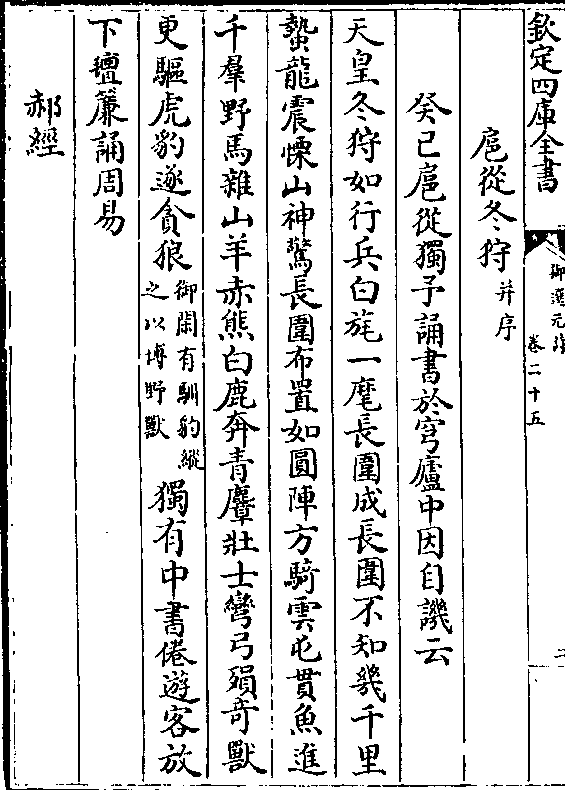 欽定四庫全書
御選元詩
卷二十五
扈從冬狩并序
癸已扈從獨予誦書於穹廬中因自譏云
天皇冬狩如行兵白旄一麾長圍成長圍不知幾千里
蟄龍震慄山神驚長圍布置如圓陣方騎雲屯貫魚進
千羣野馬雜山羊赤熊白鹿奔青麞壯士彎弓殞奇獸
更驅虎豹逐貪狼御閑有馴豹縱之以博野獸獨有中書倦遊客放
下㲲簾誦周易
郝經